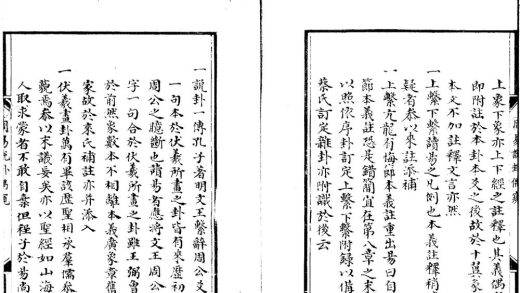 上象下象亦上下經之註釋也其義偶
即附註於本卦本爻之後故於十翼彖
本文不加註釋文言亦然
一上繫下繫讀易之凡例也本義註釋稍
疑者叅以來註添補
一上繫亢龍有悔即本義註重出易曰自
節本義註恐是錯簡宜在第八章之末
以照依序卦訂定上繫下繫附録以備
蔡氏訂定雜卦亦附識於後云
一說卦一傳孔子著明文王繫辭周公爻
一句本於伏羲所畫之卦皆有來歷初
周公之臆斷也讀易者應將文王周公
字一句合於伏羲所畫之卦雖王弼曾
於前然象數本不相離本義廣象章舊
家故於來氏補註亦并添入
一伏羲畫卦萬有畢該歷聖相承羣儒叅
藐焉叅以末議妄矣亦以聖經如山海
人取求蒙者有不敢自棄但程子於易尚